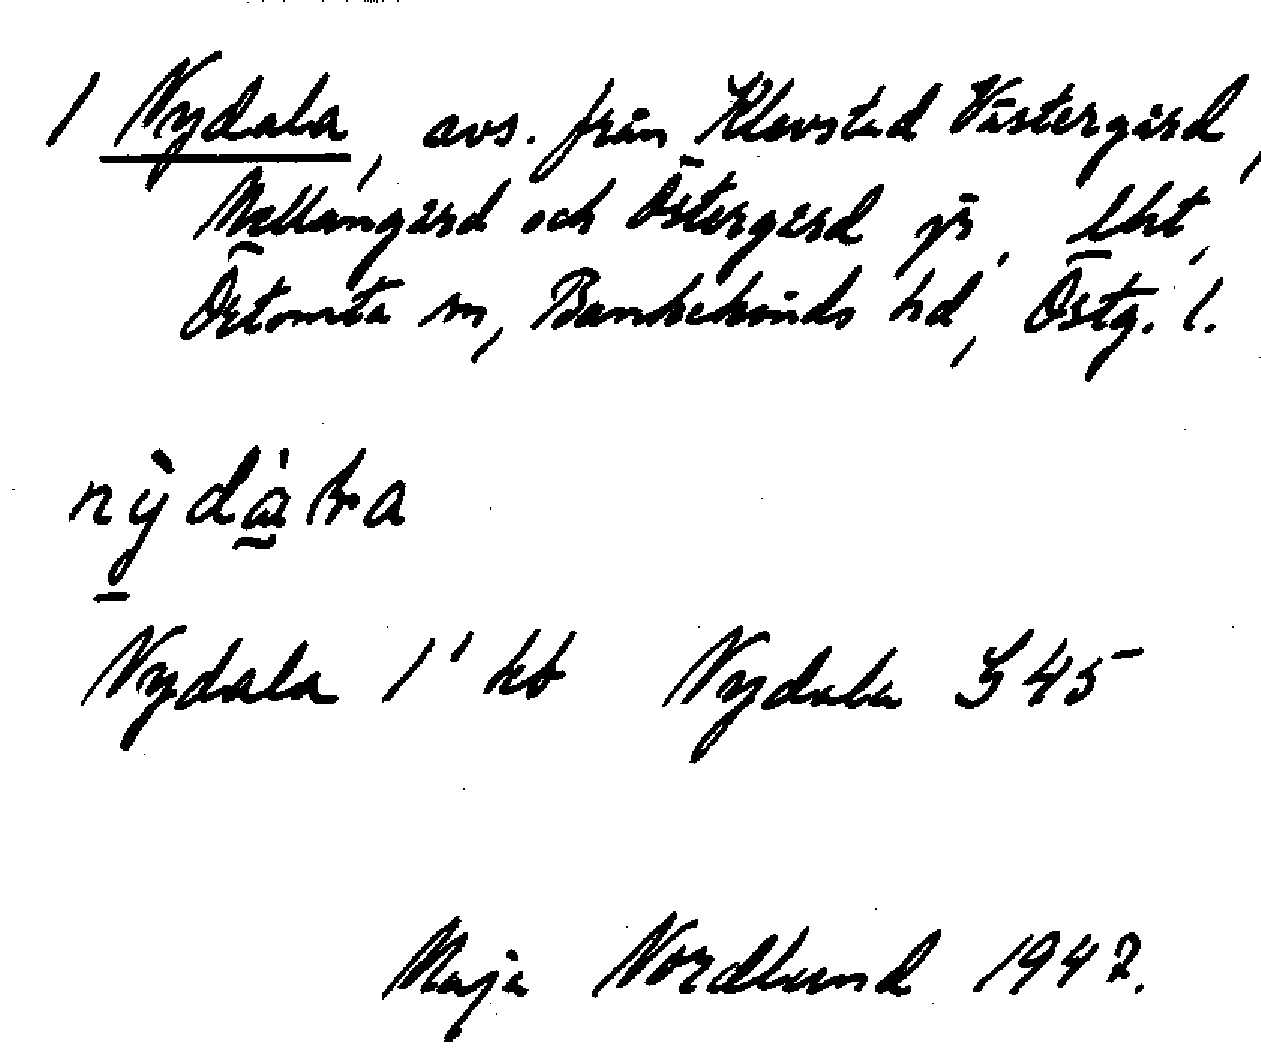 1 Nydala, avs. från Klevstad Västergård,
Mellangård och Östergård jr, lht,
Örtomta sn, Bankekinds hd, Östg. l.
nỳdàla
Nydala 1' kb Nydala S 45
Maja Nordlund 1942.